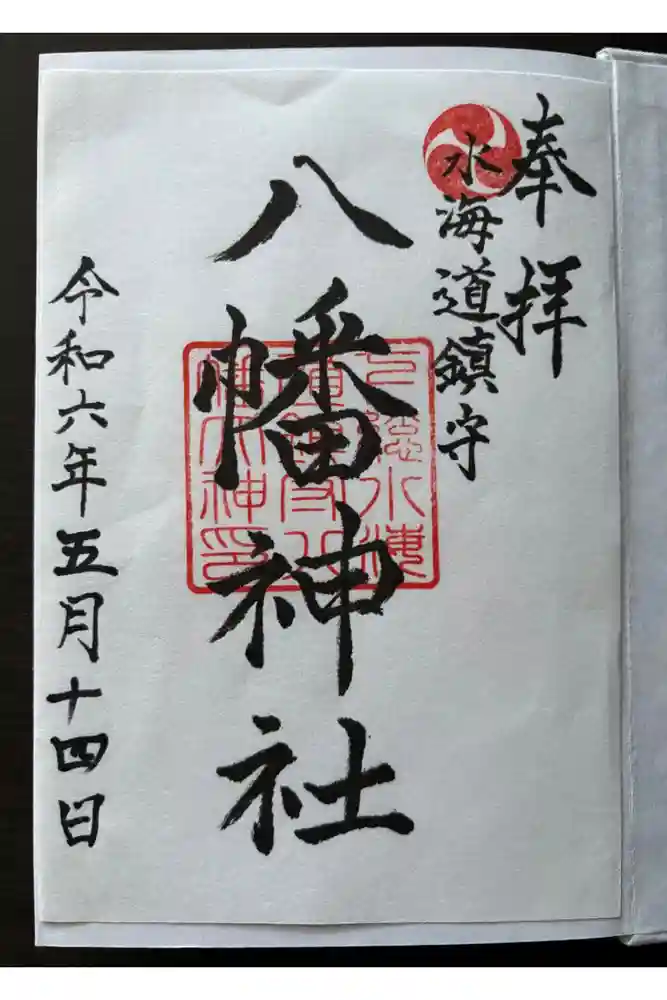 奉拝
水海道鎮守
八幡神社
令和六年五月十四日